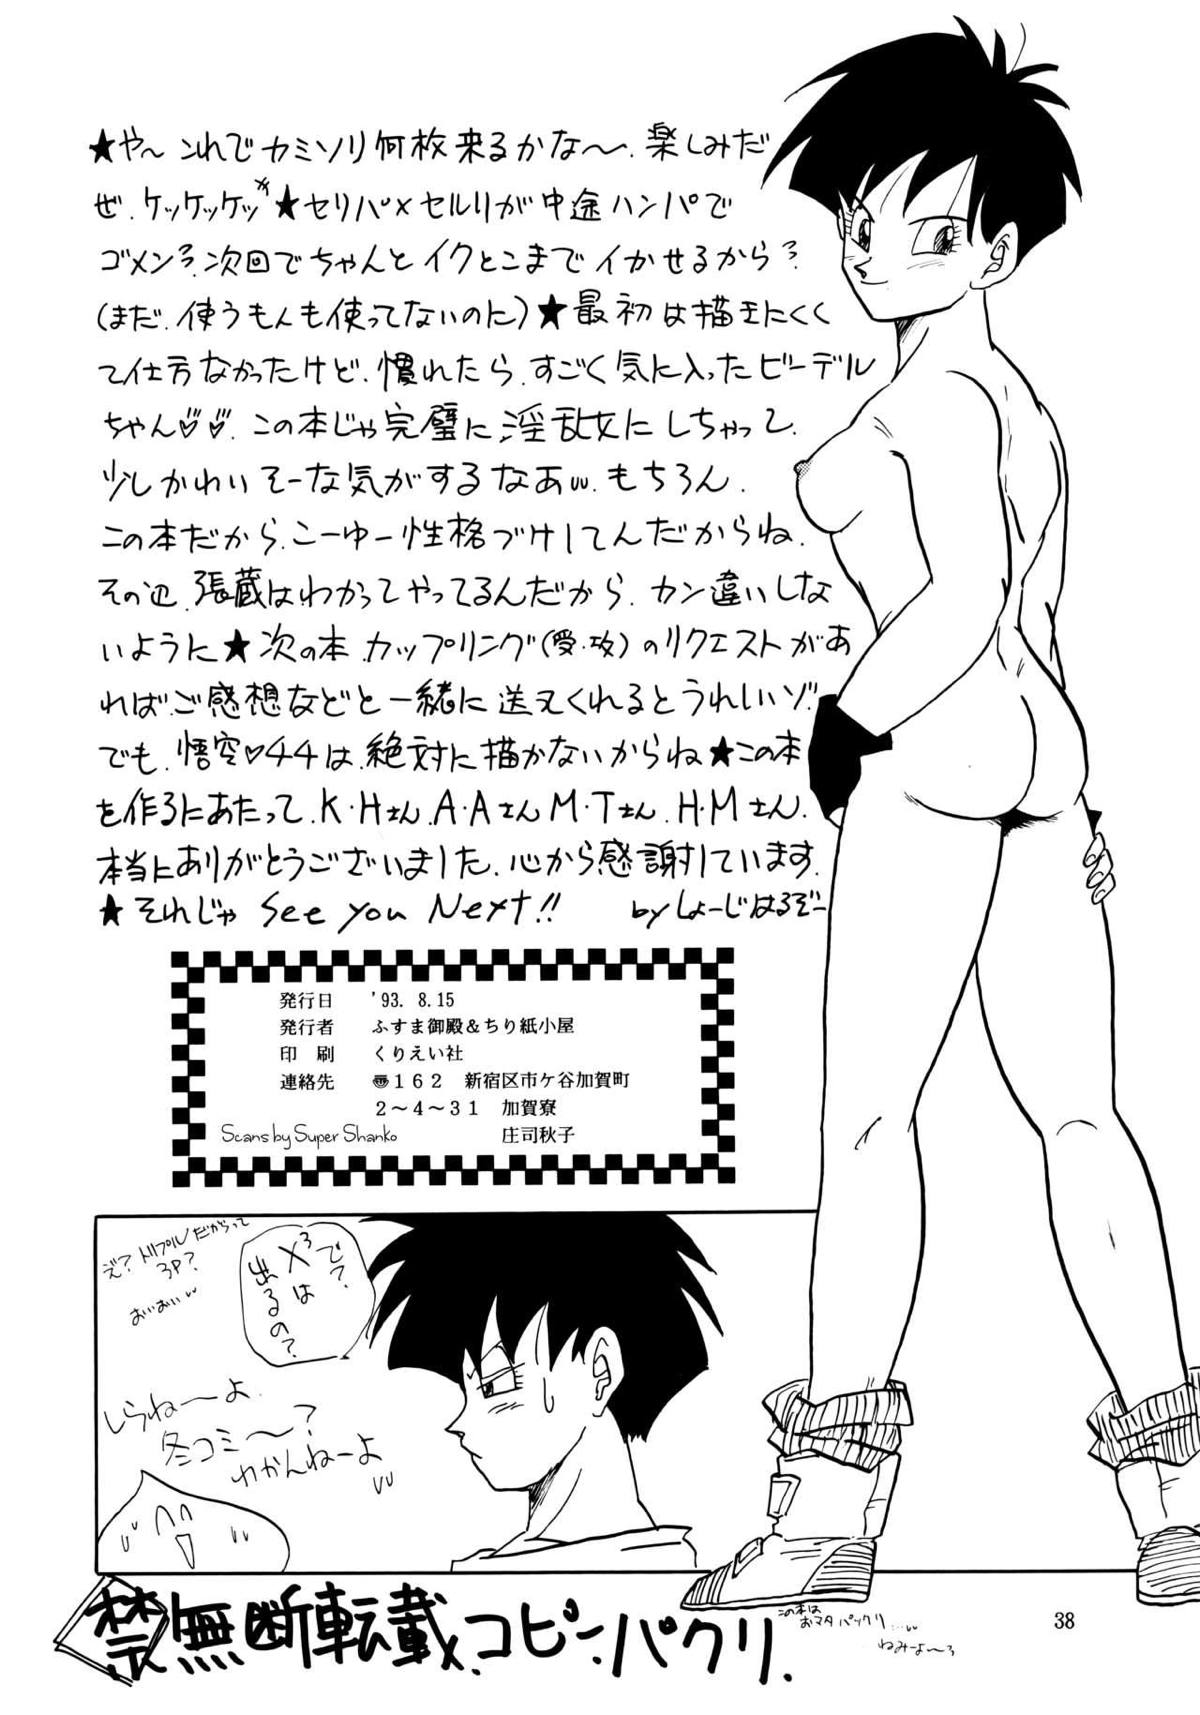 ★や〜 これで カミソリ 何枚 来るかな〜、楽しみだ
ぜ、ケッケッケッ ★セリパ×セルリが中途ハンパで
ゴメンネ、次回でちゃんとイクとこまでイかせるからネ
(まだ、使うもんも使ってないのに)★最初は描きにくく
て仕方なかったけど、慣れたら、すごく気に入ったビーデル
ちゃん♡♡、この本じゃ完璧に淫乱女にしちゃって、
少しかわいそーな気がするなあ、もちろん、
この本だから、こーゆー性格づけしてんだからね、
その辺、張蔵はわかってやってるんだから、カン違いしな
いように★次の本、カップリング(受・攻)のリクエストがあ
ればご感想などと一緒に送ってくれるとうれしいゾ、
でも、悟空♡チチは、絶対に描かないからね★この本
を作るにあたって、K・Hさん、A・Aさん、M・Tさん、H・Mさん、
本当にありがとうございました、心から感謝しています、
★それじゃ See you Next!! by しょーじはるぞー
発行日 '93. 8.15
発行者 ふすま御殿&ちり紙小屋
印 刷 くりえい社
連絡先 〠162 新宿区市ケ谷加賀町
2〜4〜31 加賀寮
庄司秋子
Scans by Super Shanko
で?
X³は
出るの?
え?トリプルだからって
3P?
おいおい
しらねーよ
冬コミ〜?
わかんねーよ
禁無断転載、コピー、パクリ、
この本は
おマタ パックリ
ねみーよ〜
38